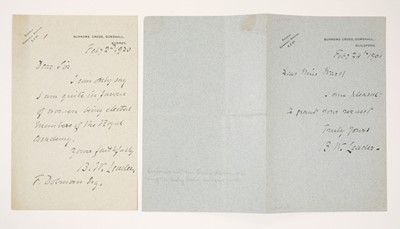 BURROWS CROSS, GOMSHALL,
SURREY.
Feby 2nd 1920
Dear Sir
I can only say
I am quite in favour
of women being elected
members of the Royal
Academy.
Yours faithfully
B. W. Leader.
F. Dolman Esq.
BURROWS CROSS, GOMSHALL,
GUILDFORD.
Dear Miss
I am pleased
to grant your request
Truly yours
B. W. Leader.